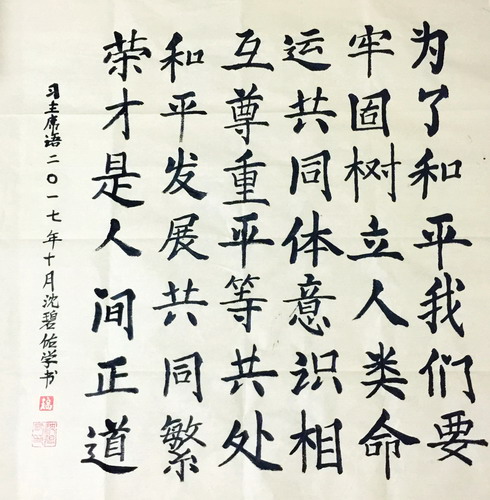 为了和平我们要
牢固树立人类命
运共同体意识相
互尊重平等共处
和平发展共同繁
荣才是人间正道
习主席语二〇一七年十月沈碧佑学书